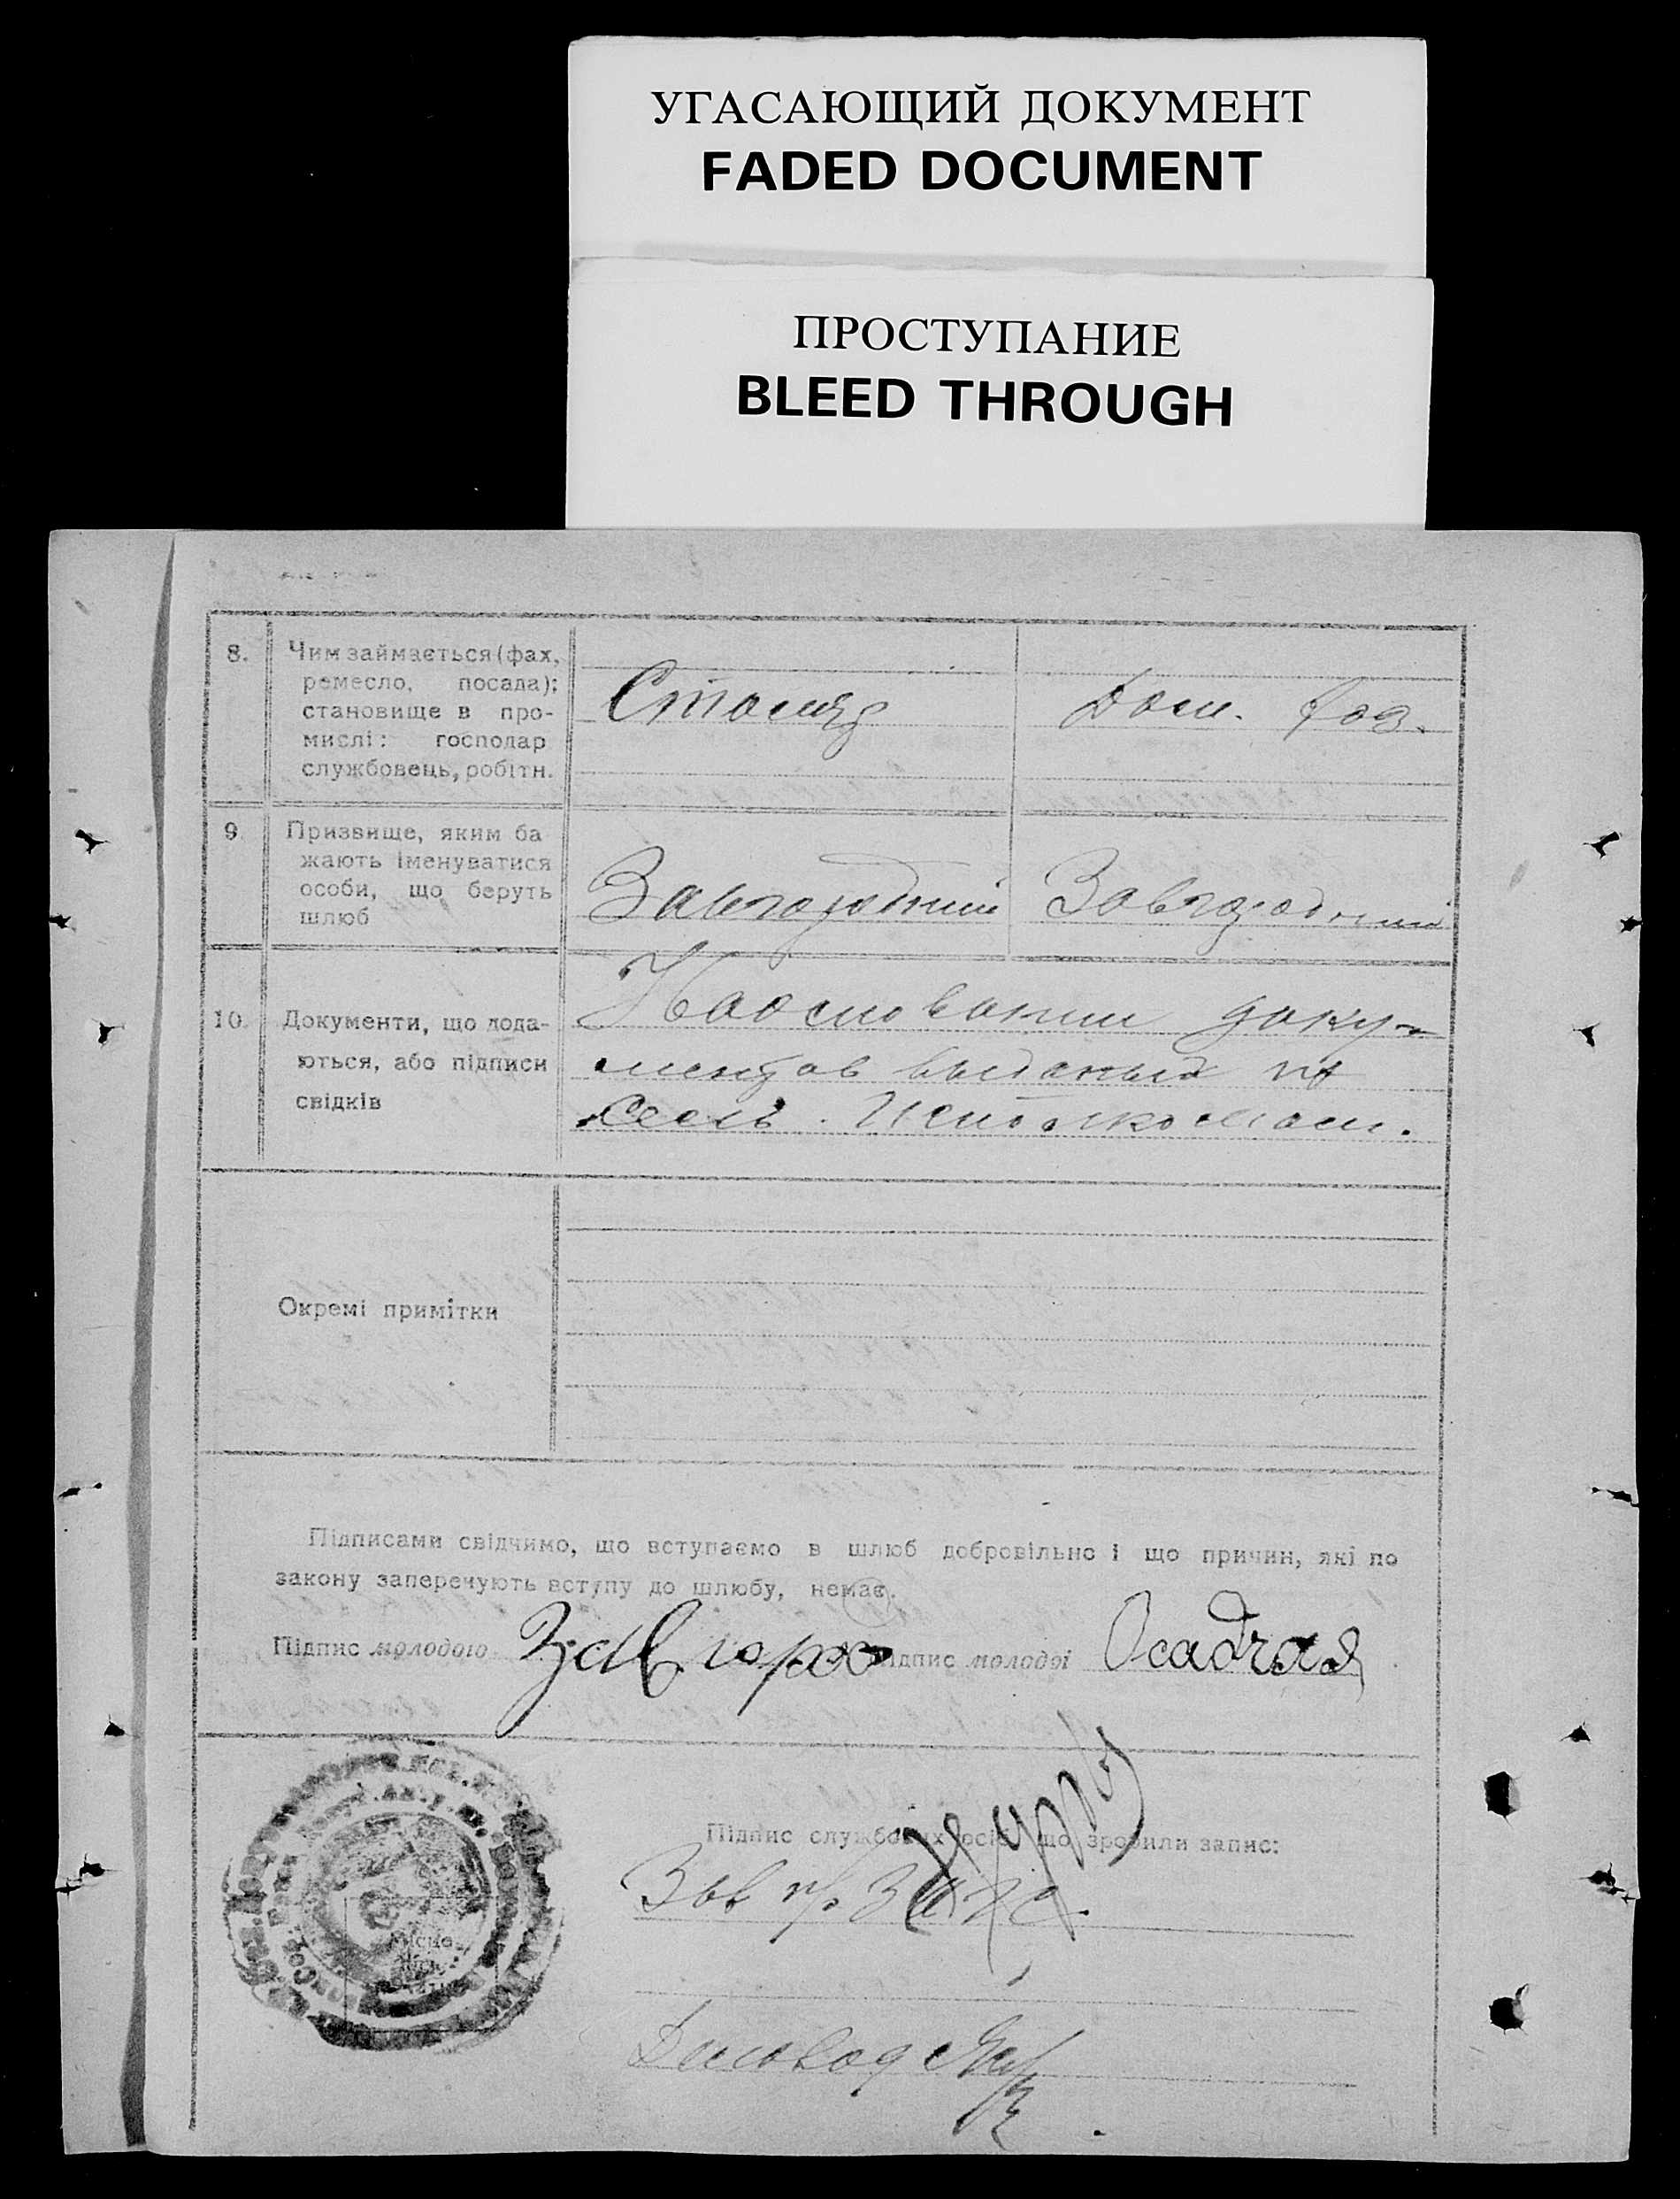 УГАСАЮЩИЙ ДОКУМЕНТ
FADED DOCUMENT
ПРОСТУПАНИЕ
BLEED THROUGH
8. Чим займається (фах,
ремесло, посада);
становище в про-
мислі: господар
службовець, робітн.
Столяр
Дом. хоз.
9. Призвище, яким ба
жають іменуватися
особи, що беруть
шлюб
Завгородний
Завгородний
10. Документи, що дода-
ються, або підписи
свідків
На основании доку-
ментов выданых
сель. Исполкомам.
Окремі примітки
Підписами свідчимо, що вступаємо в шлюб добровільно і що причин, які по
закону заперечують вступу до шлюбу, немає.
Підпис молодого Завгоро Підпис молодої Осадчая
Підпис службових осіб, що зробили запис:
Зав р/ЗАГС
Діловод